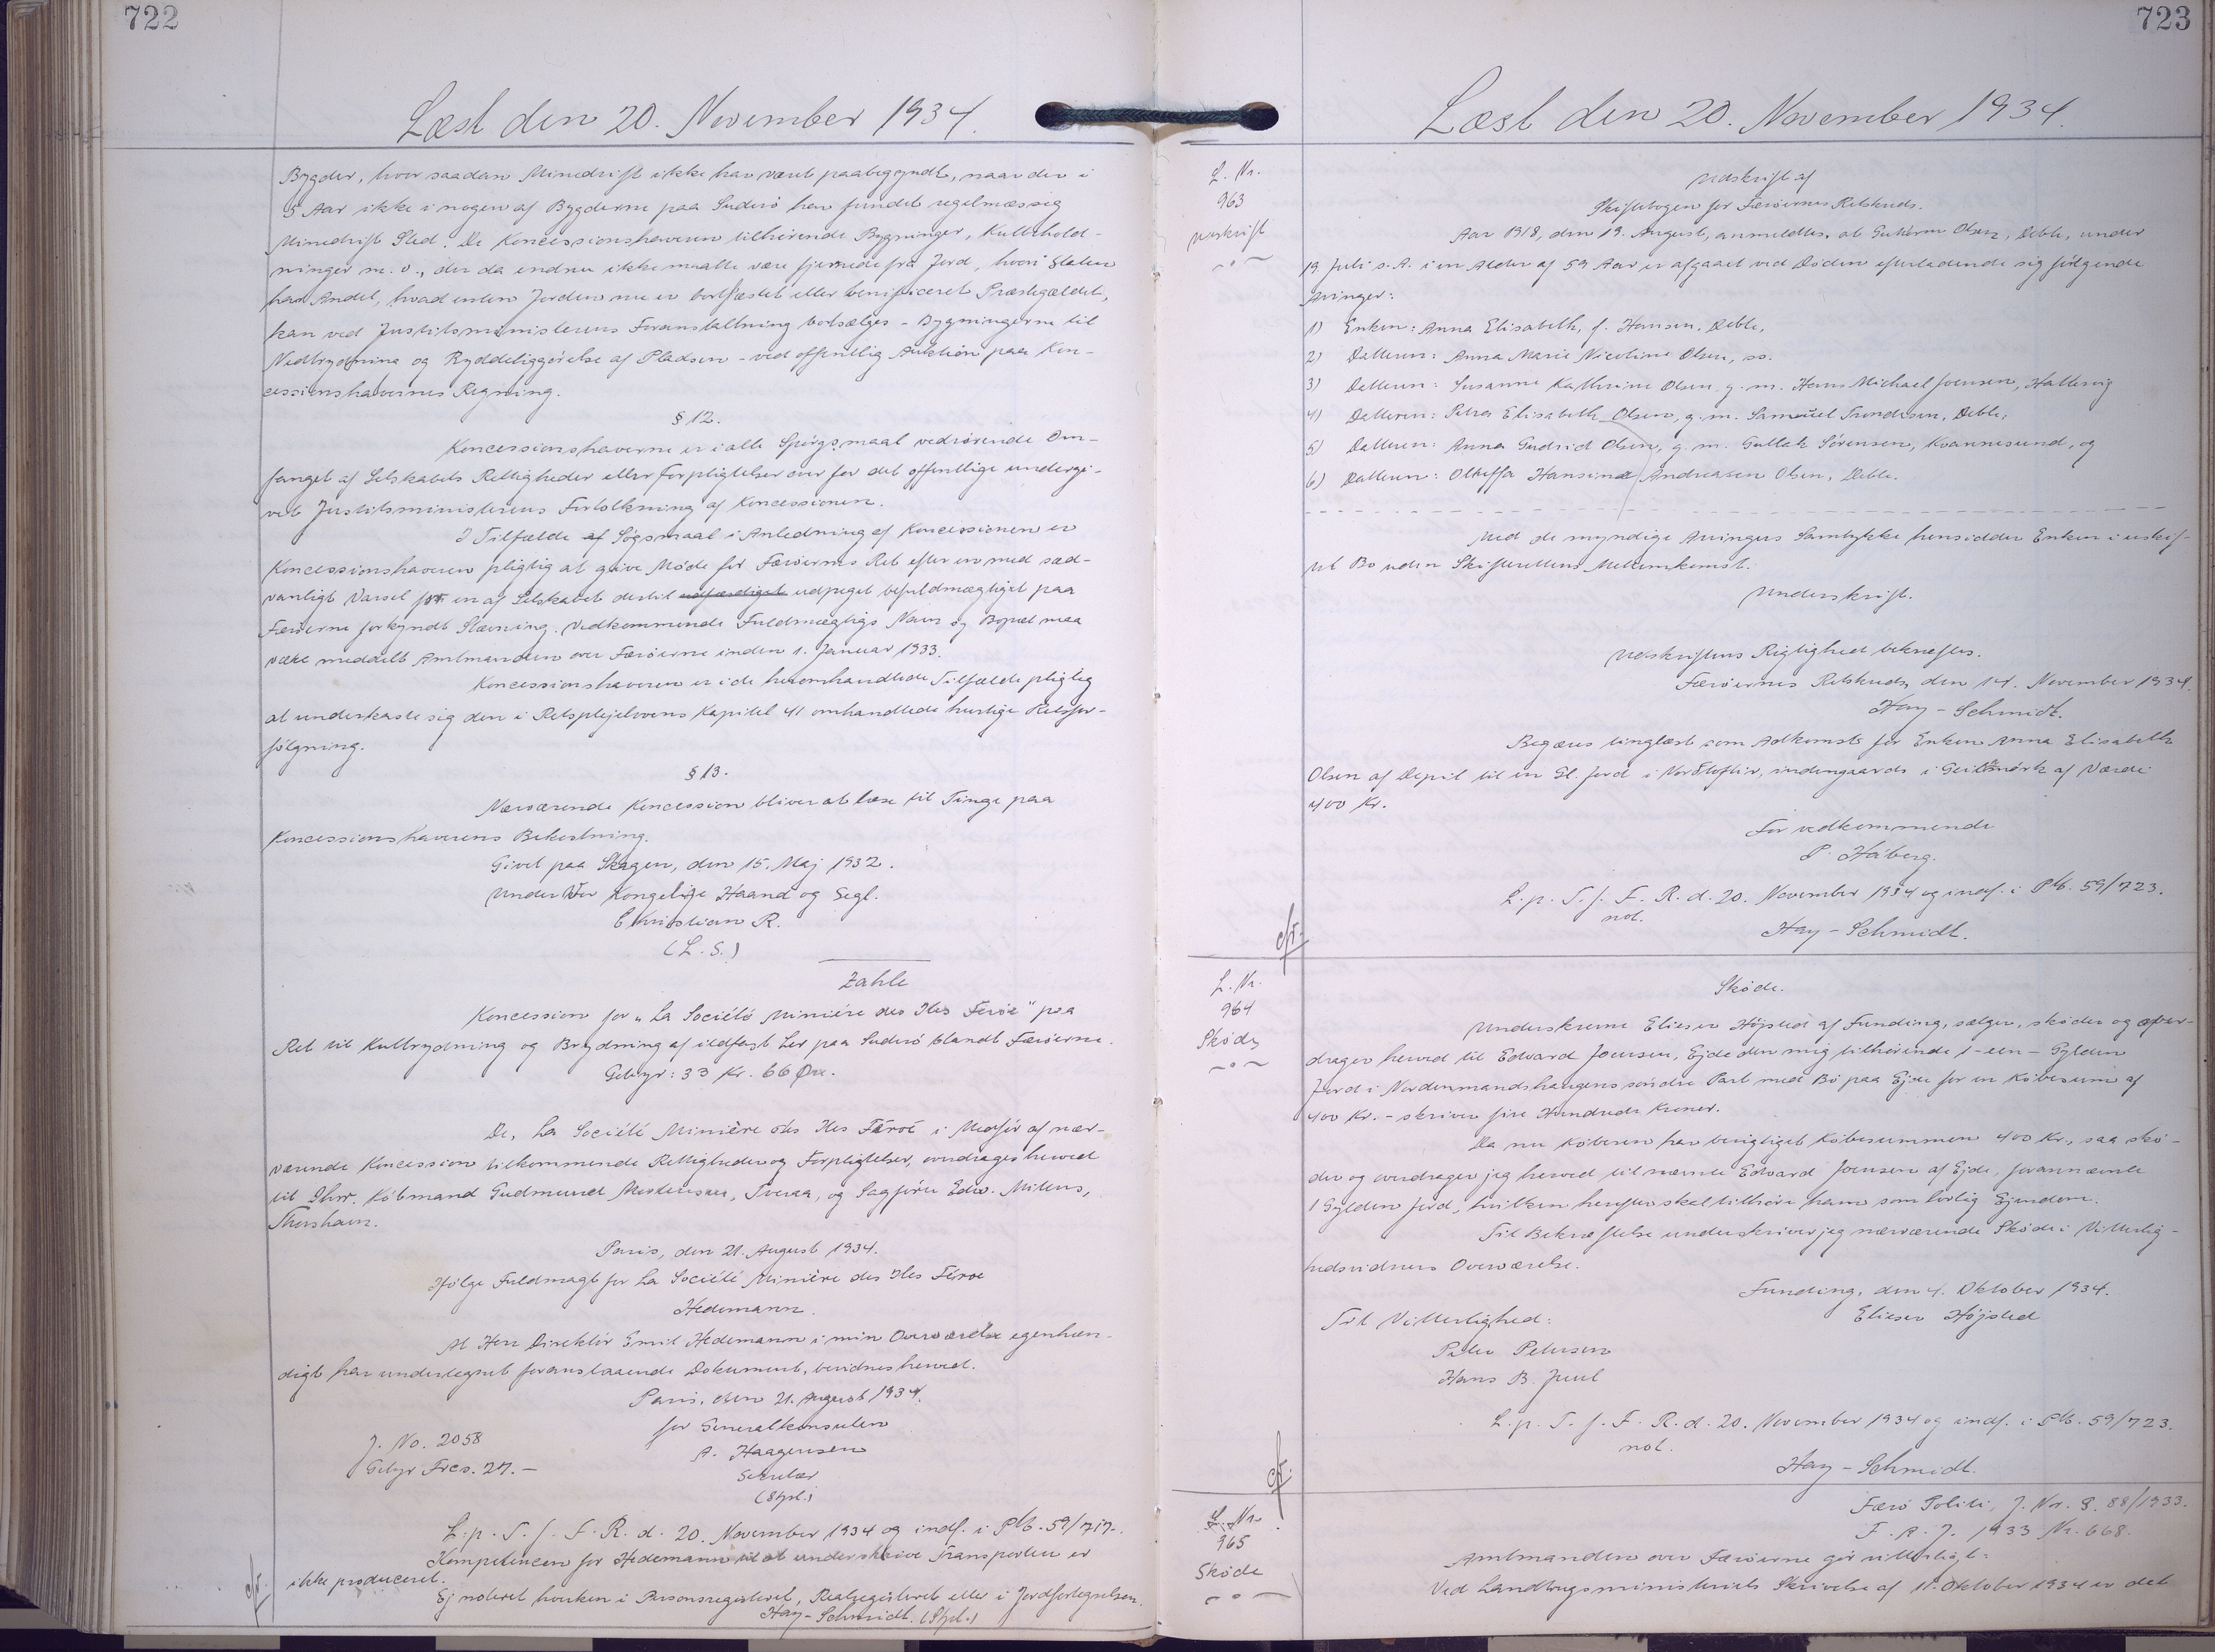 722
Læst den 20. November 1934.
Bygder, hvor saadan Minedrift ikke har været paabegyndt, naar der i
5 Aar ikke i nogen af Bygderne paa Suderö har fundet regelmæssig
Minedrift Sted. De Koncessionshaveren tilhörende Bygninger, Kulbehold-
ninger m.v., der da endnu ikke maatte være fjernede fra Jord, hvori Staten
har Andel, hvad enten Jorden nu er bortfæstet eller benificeret Præstegældet,
kan ved Justitsministerens Foranstaltning bortsælges - Bygningerne til
Nedbrydning og Ryddeliggörelse af Pladsen - ved offentlig Auktion paa Kon-
cessionshaverens Regning.
§ 12.
Koncessionshaverne er i alle Spörgsmaal vedrörende Om-
fanget af Selskabets Rettigheder eller Forpligtelser over for det offentlige undergi-
vet Justitsministerens Fortolkning af Koncessionen.
I Tilfælde af Sögsmaal i Anledning af Koncessionen er
Koncessionshaveren pligtig at give Möde for Færöernes Ret efter en med sæd-
vanligt Varsel for en af Selskabet dertil udfærdiget udpeget befuldmægtiget paa
Færöerne forkyndt Stævning. Vedkommende Fuldmægtigs Navn og Bopæl maa
være meddelt Amtmanden over Færöerne inden 1. Januar 1933.
Koncessionshaveren er i de heromhandlede Tilfælde pligtig
at underkaste sig den i Retsplejelovens Kapitel 41 omhandlede hurtige Retsfor-
fölgning.
§ 13.
Nærværende Koncession bliver at læse til Tinge paa
Koncessionshaverens Bekostning.
Givet paa Skagen, den 15. Maj 1932.
Under Vor Kongelige Haand og Segl.
Christian R.
(L.S.)
Zahle
Koncession for "La Société Minière des Iles Féroé" paa
Ret til Kulbrydning og Brydning af ildfast Ler paa Suderö blandt Færöerne.
Gebyr: 33 Kr. 66 Øre.
De, La Société Minière des Iles Féroé i Medför af nær-
værende Koncession tilkommende Rettigheder og Forpligtelser, overdrages herved
til Dhrr. Köbmand Gudmund Mortensen, Tveraa, og Sagförer Edw. Mitens,
Thorshavn.
Paris, den 21. August 1934.
Ifölge Fuldmagt for La Société Minière des Iles Féroe
Hedemann.
At Herr Direktör Emil Hedemann i min Overværelse egenhæn-
digt har undertegnet foranstaaende Dokument, bevidnes herved.
Paris, den 21. August 1934.
for Generalkonsulen
J. No. 2058
A. Haagensen
Gebyr Frcs. 27.-
Sekretær
(Stpl.)
L.p.T.f.F.R.d. 20. November 1934 og indf. i Ptb. 59/717.
Kompetencen for Hedemann til at underskrive Transporten er
ikke produceret.
Ej noteret hverken i Personregisteret, Realregisteret eller i Jordfortegnelsen.
Hay-Schmidt. (Stpl.)
cfr.
723
Læst den 20. November 1934.
L. Nr.
963
Udskrift
Udskrift af
Skiftebogen for Færöernes Retskreds.
Aar 1918, den 19. August, anmeldtes, at Guttorm Olsen, Deble, under
19 Juli s.A. i en Alder af 59 Aar er afgaaet ved Döden efterladende sig fölgende
Arvinger:
1) Enken: Anna Elisabeth, f. Hansen, Deble,
2) Datteren: Anna Marie Nicoline Olsen, ss.
3) Datteren: Susanne Kathrine Olsen g.m. Hans Michael Joensen, Hattervig
4) Datteren: Petra Elisabeth Olsen, g.m. Samuel Trondesen, Deble,
5) Datteren: Anna Gudrid Olsen, g.m. Gullak Sörensen, Kvannesund, og
6) Datteren: Oluffa Hansine Andreasen Olsen, Deble.
Med de myndige Arvingers Samtykke hensidder Enken i uskif-
tet Bo uden Skifterettens Mellemkomst.
Underskrift.
Udskriftens Rigtighed bekræftes.
Færöernes Retskreds, den 14. November 1934.
Hay-Schmidt.
Begæres tinglæst som Adkomst for Enken Anna Elisabeth
Olsen af Depil til en Gl. Jord i Norðtoftir, indengaards i af Værdi
400 Kr.
For vedkommende
P. Háberg.
L.p.T.f.F.R.d. 20. November 1934 og indf. i Ptb. 59/723.
not.
Hay-Schmidt.
cfr.
L. Nr.
964
Sköde
Sköde.
Underskrevne Elieser Höjsted af Funding, sælger, sköder og over-
drager herved til Edvard Joensen, Ejde den mig tilhörende 1 - een - Gylden
Jord i Nordenmandshaugens söndre Part med Bö paa Ejde for en Köbesum af
400 Kr. - skriver fire Hundrede Kroner.
Da nu Köberen har berigtiget Köbesummen 400 Kr., saa skö-
der og overdrager jeg herved til nævnte Edvard Joensen af Ejde, forannævnte
1 Gylden Jord, hvilken herefter skal tilhöre ham som lovlig Ejendom.
Til Bekræftelse underskriver jeg nærværende Sköde i Vitterlig-
hedsvidners Overværelse.
Funding, den 4. Oktober 1934.
Til Vitterlighed:
Elieser Höjsted
Peter Petersen
Hans B. Juul
L.p.T.f.F.R.d. 20. November 1934 og indf. i Ptb. 59/723.
not.
Hay-Schmidt.
cfr.
L. Nr.
965
Sköde
Færö Politi, J. Nr. 8. 88/1933.
F.A.J. 1933 Nr. 668.
Amtmanden over Færöerne gör vitterligt:
Ved Landbrugsministeriets Skrivelse af 11. Oktober 1934 er det